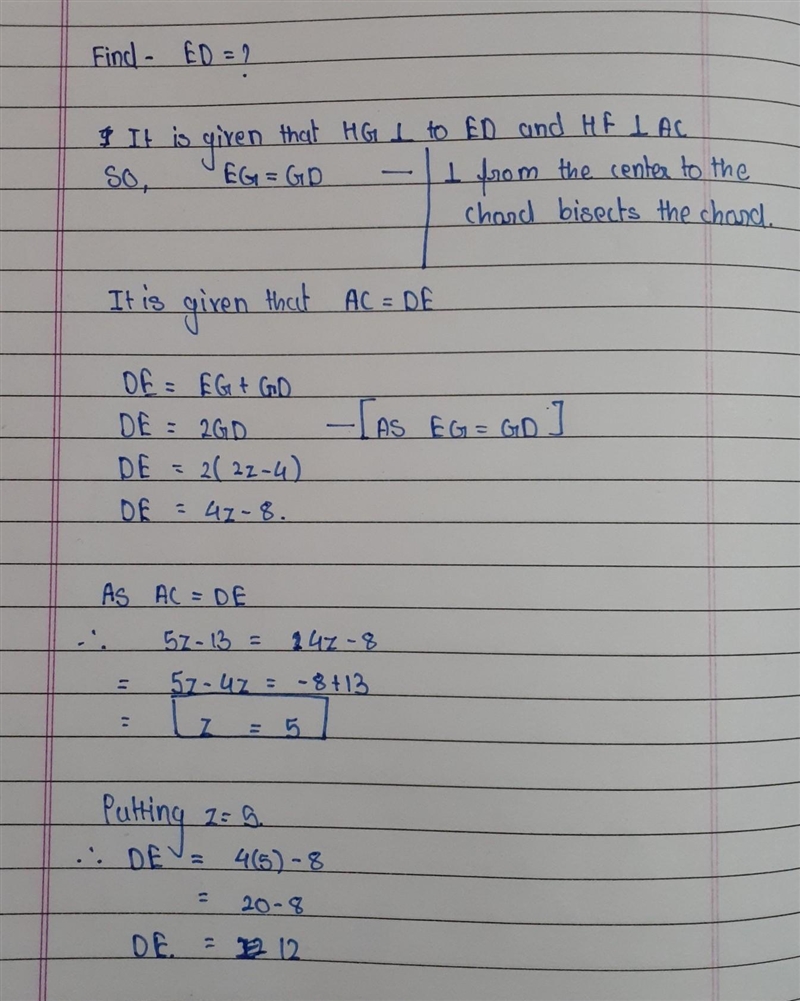 Find - ED = ?
It is given that HG ⊥ to ED and HF ⊥ AC
So, EG = GD — ⊥ from the center to the
chord bisects the chord.
It is given that AC = DE
DE = EG + GD
DE = 2GD — [AS EG = GD]
DE = 2(2z-4)
DE = 4z-8.
As AC = DE
∴ 5z-13 = 4z-8
= 5z-4z = -8+13
= z = 5
Putting z = 5.
∴ DE = 4(5)-8
= 20-8
DE. = 12